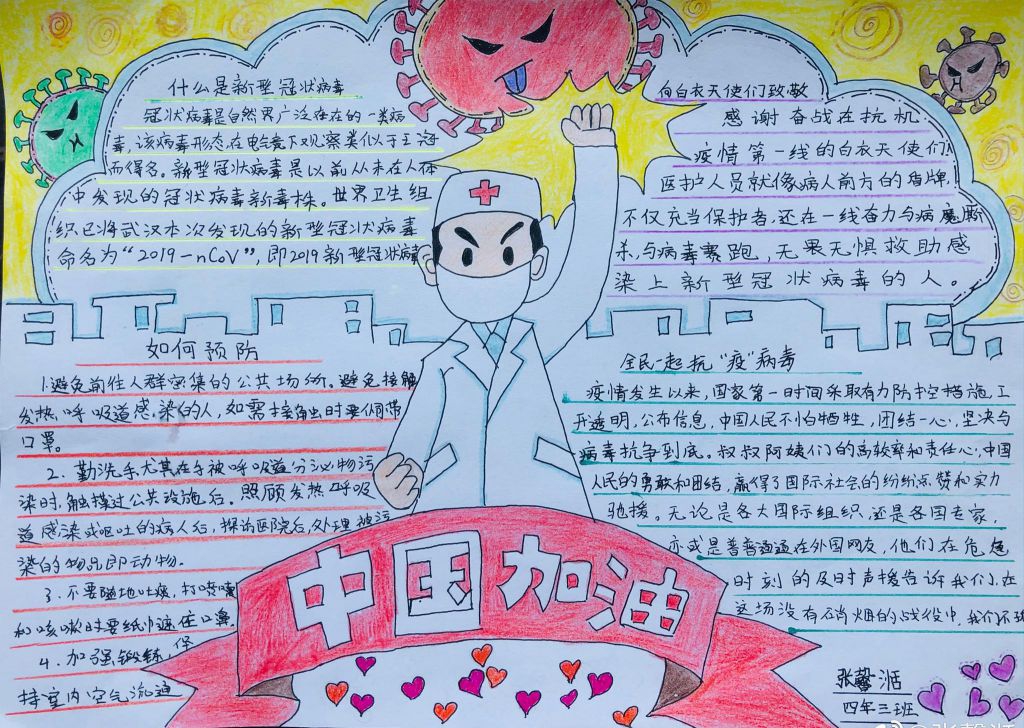 什么是新型冠状病毒
冠状病毒是自然界广泛存在的一类病
毒，该病毒形态在电镜下观察类似于王冠
而得名。新型冠状病毒是以前从未在人体
中发现的冠状病毒新毒株。世界卫生组
织已将武汉本次发现的新型冠状病毒
命名为“2019-nCoV”，即2019新型冠状病毒
向白衣天使们致敬
感谢奋战在抗机
疫情第一线的白衣天使们
医护人员就像病人前方的盾牌，
不仅充当保护者，还在一线奋力与病魔厮
杀，与病毒赛跑，无畏无惧救助感
染上新型冠状病毒的人。
如何预防
1.避免前往人群密集的公共场所。避免接触
发热呼吸道感染的人，如需接触时要佩带
口罩。
2、勤洗手尤其在手被呼吸道分泌物污
染时、触摸过公共设施后。照顾发热呼吸
道感染或呕吐的病人后，探访医院后，处理被污
染的物品即动物。
3、不要随地吐痰，打喷嚏
和咳嗽时要纸巾遮住口鼻。
4、加强锻炼，保
持室内空气流通
全民一起抗“疫”病毒
疫情发生以来，国家第一时间采取有力防控措施，工
开透明，公布信息，中国人民不怕牺牲，团结一心，坚决与
病毒抗争到底。叔叔阿姨们的高效率和责任心，中国
人民的勇敢和团结，赢得了国际社会的纷纷点赞和实力
驰援。无论是各大国际组织，还是各国专家，
亦或是普普通通在外国网友，他们在危急
时刻的及时声援告诉我们，在
这场没有硝烟的战役中，我们不孤
中国加油
张馨湉
四年三班